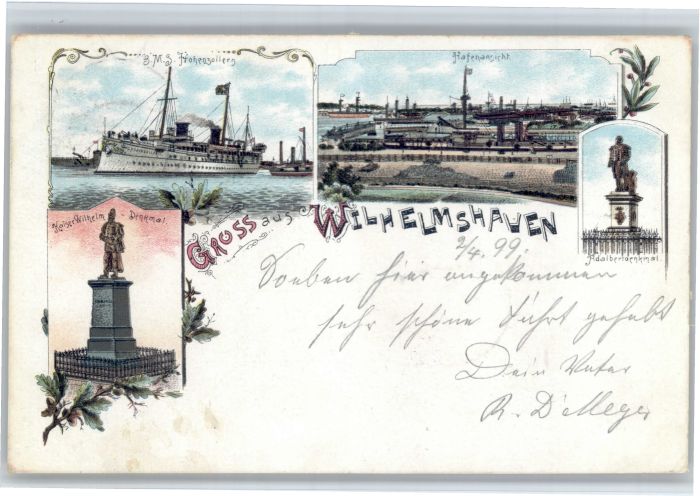 S.M.S. Hohenzollern
Hafenansicht.
Kaiser Wilhelm - Denkmal.
Gruss aus Wilhelmshaven
Adalbertdenkmal.
2/4. 99.
Soeben hier angekommen
sehr schöne Fahrt gehabt
Dein Vater
R.